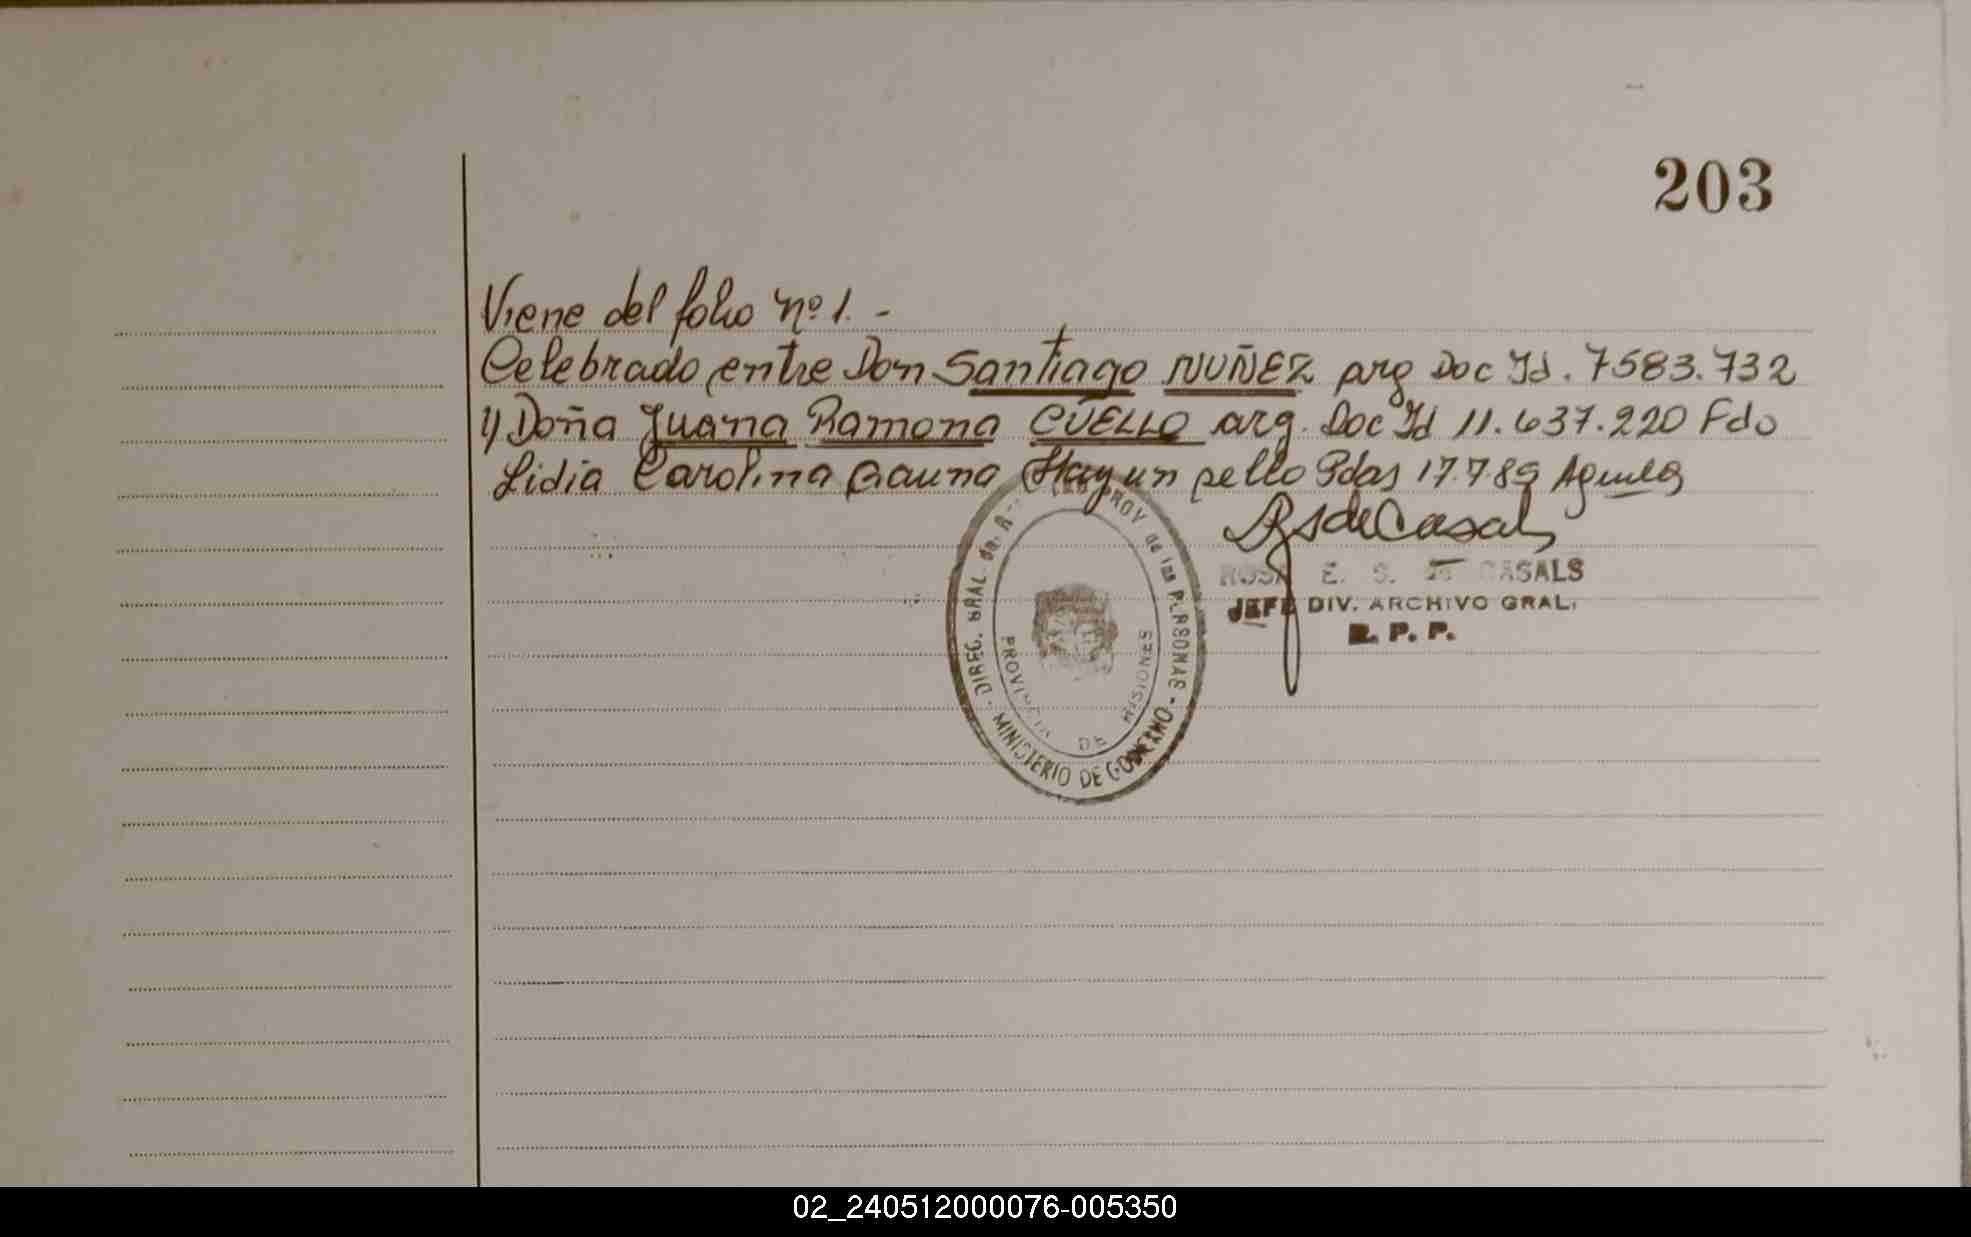 203
Viene del folio nº 1. -
Celebrado entre Don Santiago NUÑEZ arg Doc Id. 7583.732
y Doña Juana Ramona CUELLO arg. Doc Id 11.637.220 Fdo
Lidia Carolina Gauna Hay un sello Pdas 17.789
RS de Casals
ROSA E. S. de CASALS
JEFE DIV. ARCHIVO GRAL.
R. P. P.
DIREC. GRAL. de PROV de las PERSONAS - MINISTERIO DE GOBIERNO -
PROVINCIA DE MISIONES
02_240512000076-005350